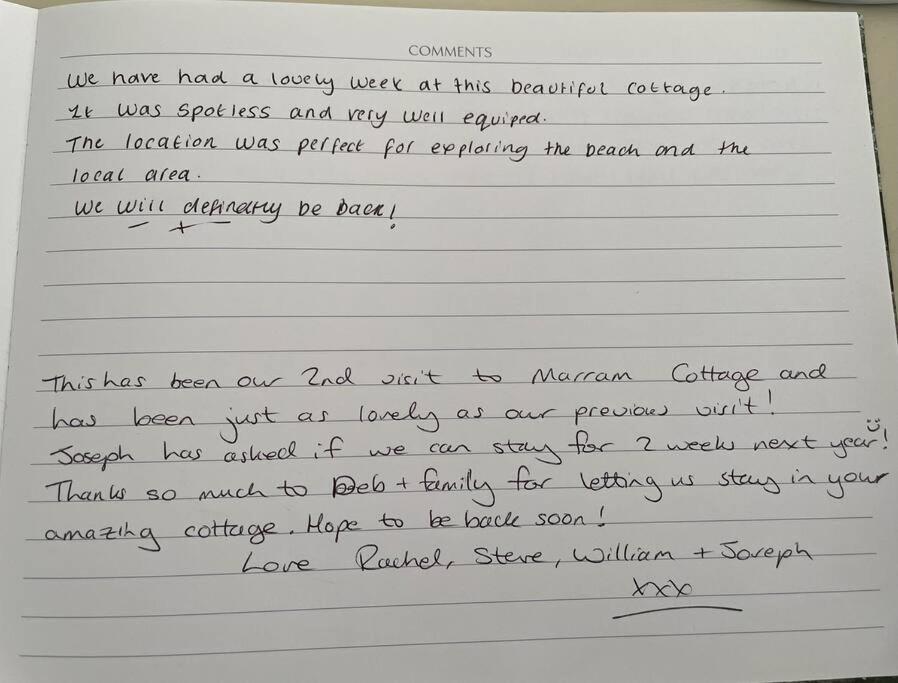 COMMENTS
We have had a lovely week at this beautiful cottage.
It was spotless and very well equiped.
The location was perfect for exploring the beach and the
local area.
We will definetly be back!
This has been our 2nd visit to Marram Cottage and
has been just as lovely as our previous visit!
Joseph has asked if we can stay for 2 weeks next year!
Thanks so much to Deb + family for letting us stay in your
amazing cottage. Hope to be back soon!
Love Rachel, Steve, William + Joseph
xxx